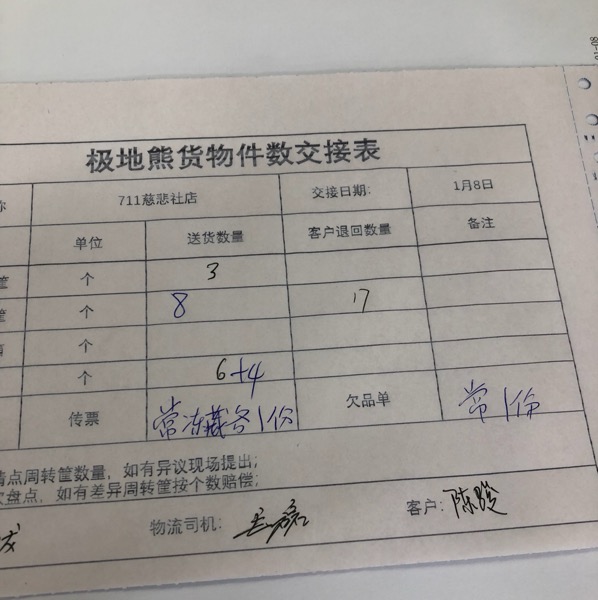 极地熊货物件数交接表
称 711慈悲社店 交接日期: 1月8日
单位 送货数量 客户退回数量 备注
筐 个 3
筐 个 8 17
箱 个
个 6+4
传票 常冻藏各1份 欠品单 常1份
清点周转筐数量，如有异议现场提出；
次盘点，如有差异周转筐按个数赔偿；
物流司机: 客户: 陈